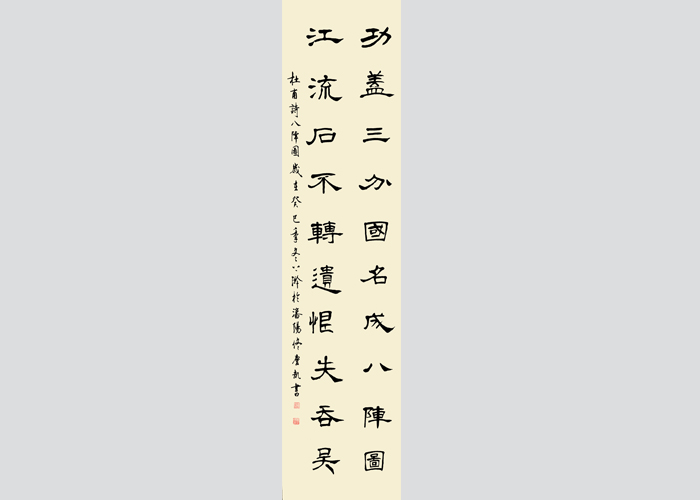 功盖三分國名成八陣圖
江流石不轉遺恨失吞吳
杜甫詩八陣圖歲在癸巳季冬於瀋陽書